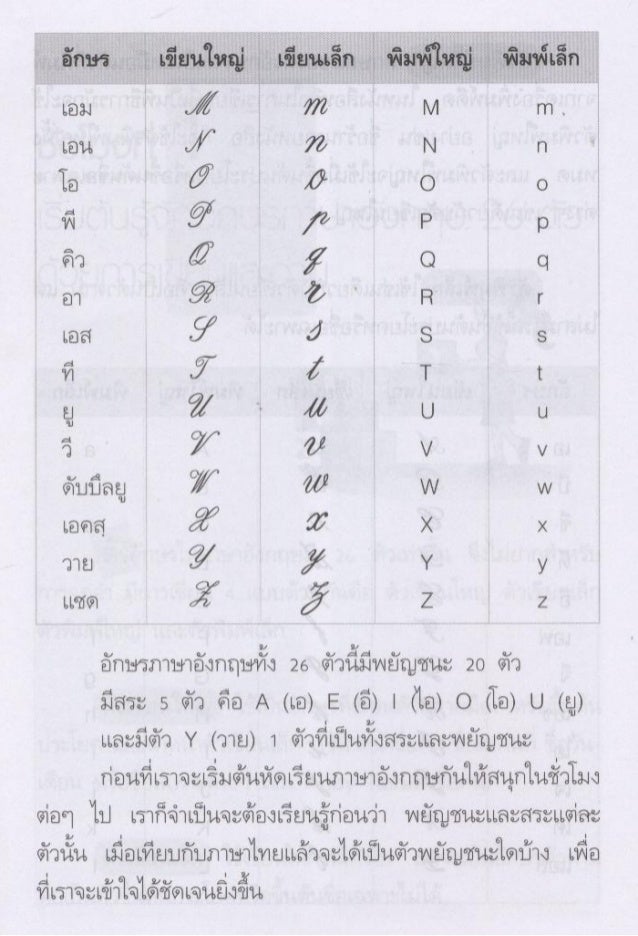 อักษร เขียนใหญ่ เขียนเล็ก พิมพ์ใหญ่ พิมพ์เล็ก
เอม M m M m
เอน N n N n
โอ O o O o
พี P p P p
คิว Q q Q q
อา R r R r
เอส S s S s
ที T t T t
ยู U u U u
วี V v V v
ดับบึลยู W w W w
เอคสฺ X x X x
วาย Y y Y y
แซด Z z Z z
อักษรภาษาอังกฤษทั้ง 26 ตัวนี้มีพยัญชนะ 20 ตัว
มีสระ 5 ตัว คือ A (เอ) E (อี) I (ไอ) O (โอ) U (ยู)
และมีตัว Y (วาย) 1 ตัวที่เป็นทั้งสระและพยัญชนะ
ก่อนที่เราจะเริ่มต้นหัดเรียนภาษาอังกฤษกันให้สนุกในชั่วโมง
ต่อๆ ไป เราก็จำเป็นจะต้องเรียนรู้ก่อนว่า พยัญชนะและสระแต่ละ
ตัวนั้น เมื่อเทียบกับภาษาไทยแล้วจะได้เป็นตัวพยัญชนะใดบ้าง เพื่อ
ที่เราจะเข้าใจได้ชัดเจนยิ่งขึ้น